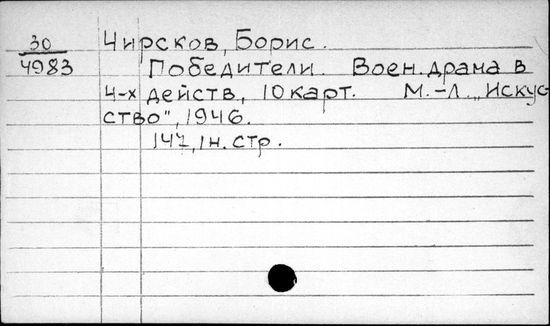 30 Чирсков, Борис.
4983 Победители. Воен. драма в
4-х действ, 10 карт. М.-Л. „Искус
ство", 1946.
147, 1н. стр.